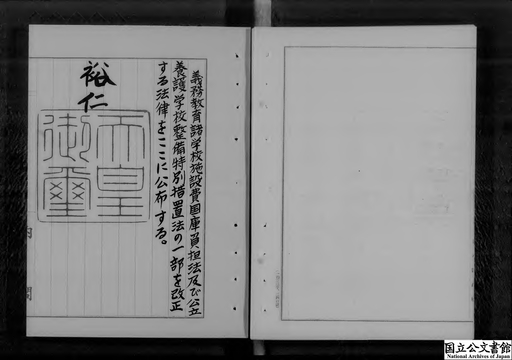 義務教育諸学校施設費国庫負担法及び公立
養護学校整備特別措置法の一部を改正
する法律をここに公布する。
裕仁
天皇
御璽
内
閣
国立公文書館
National Archives of Japan